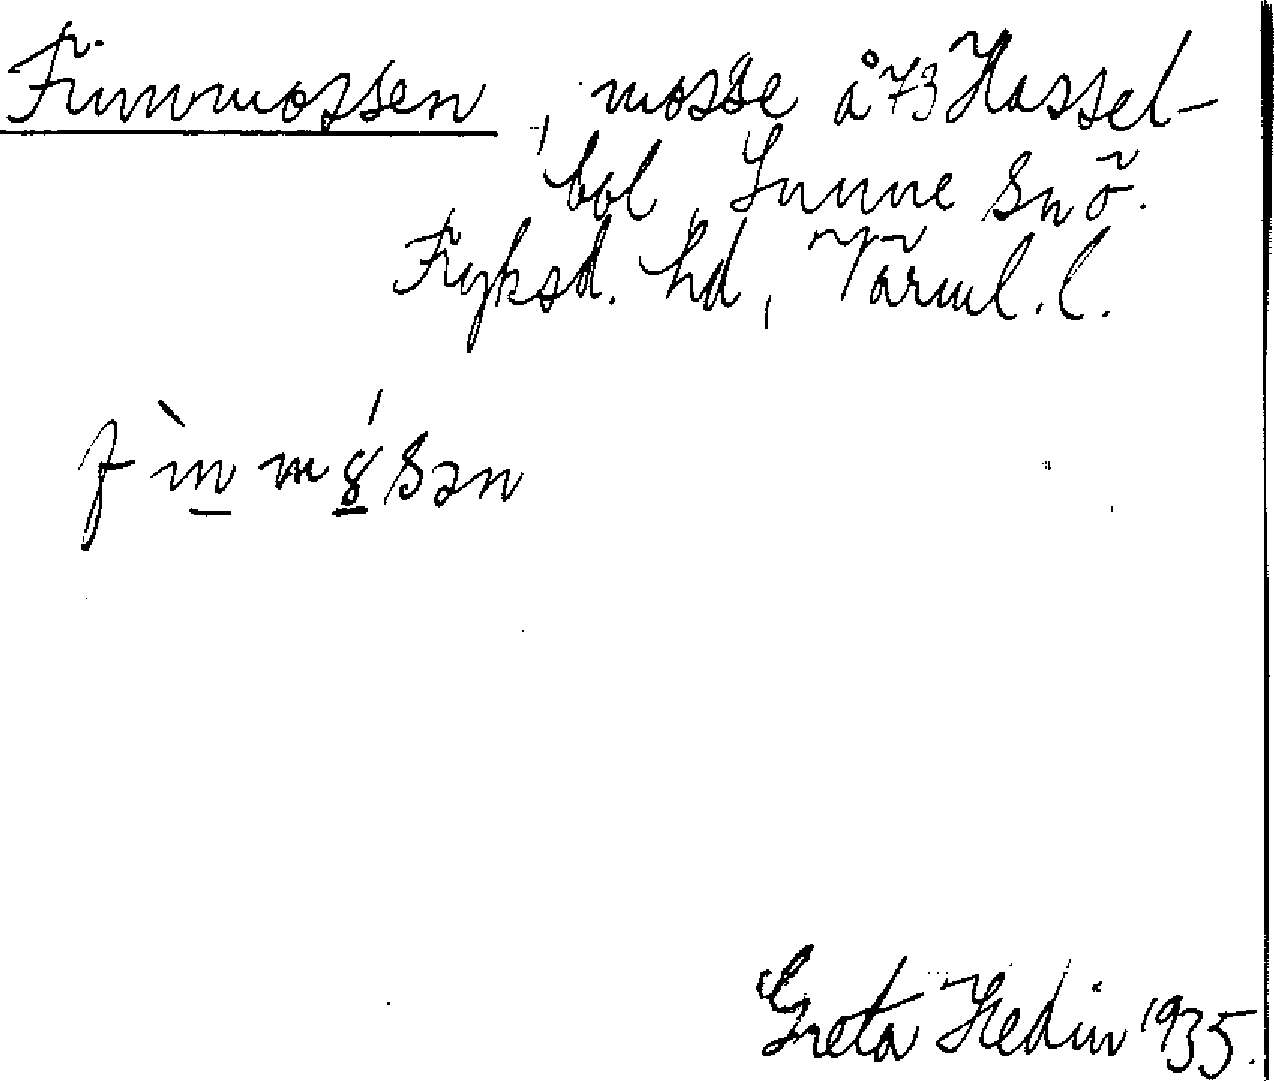 Finnmossen, mosse å 73 Hassel-
bol, Sunne sn ö.
Fryksd. hd, Värml. l.
fìn mósən
Greta Hedin 1935.